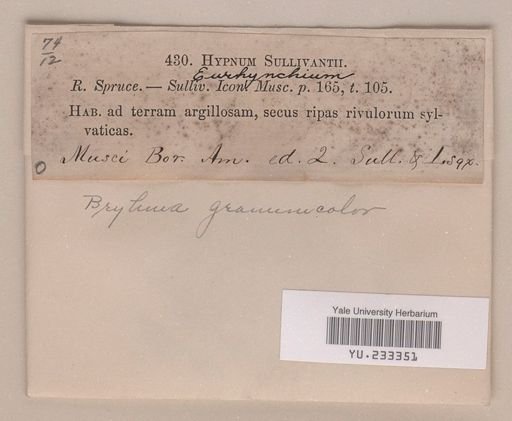 74
12
430. HYPNUM SULLIVANTII.
Eurhynchium
R. Spruce. — Sulliv. Icon. Musc. p. 165, t. 105.
HAB. ad terram argillosam, secus ripas rivulorum syl-
vaticas.
O Musci Bor. Am. ed. 2. Sull. & Lsqx.
Bryhnia graminicolor
Yale University Herbarium
YU.233351